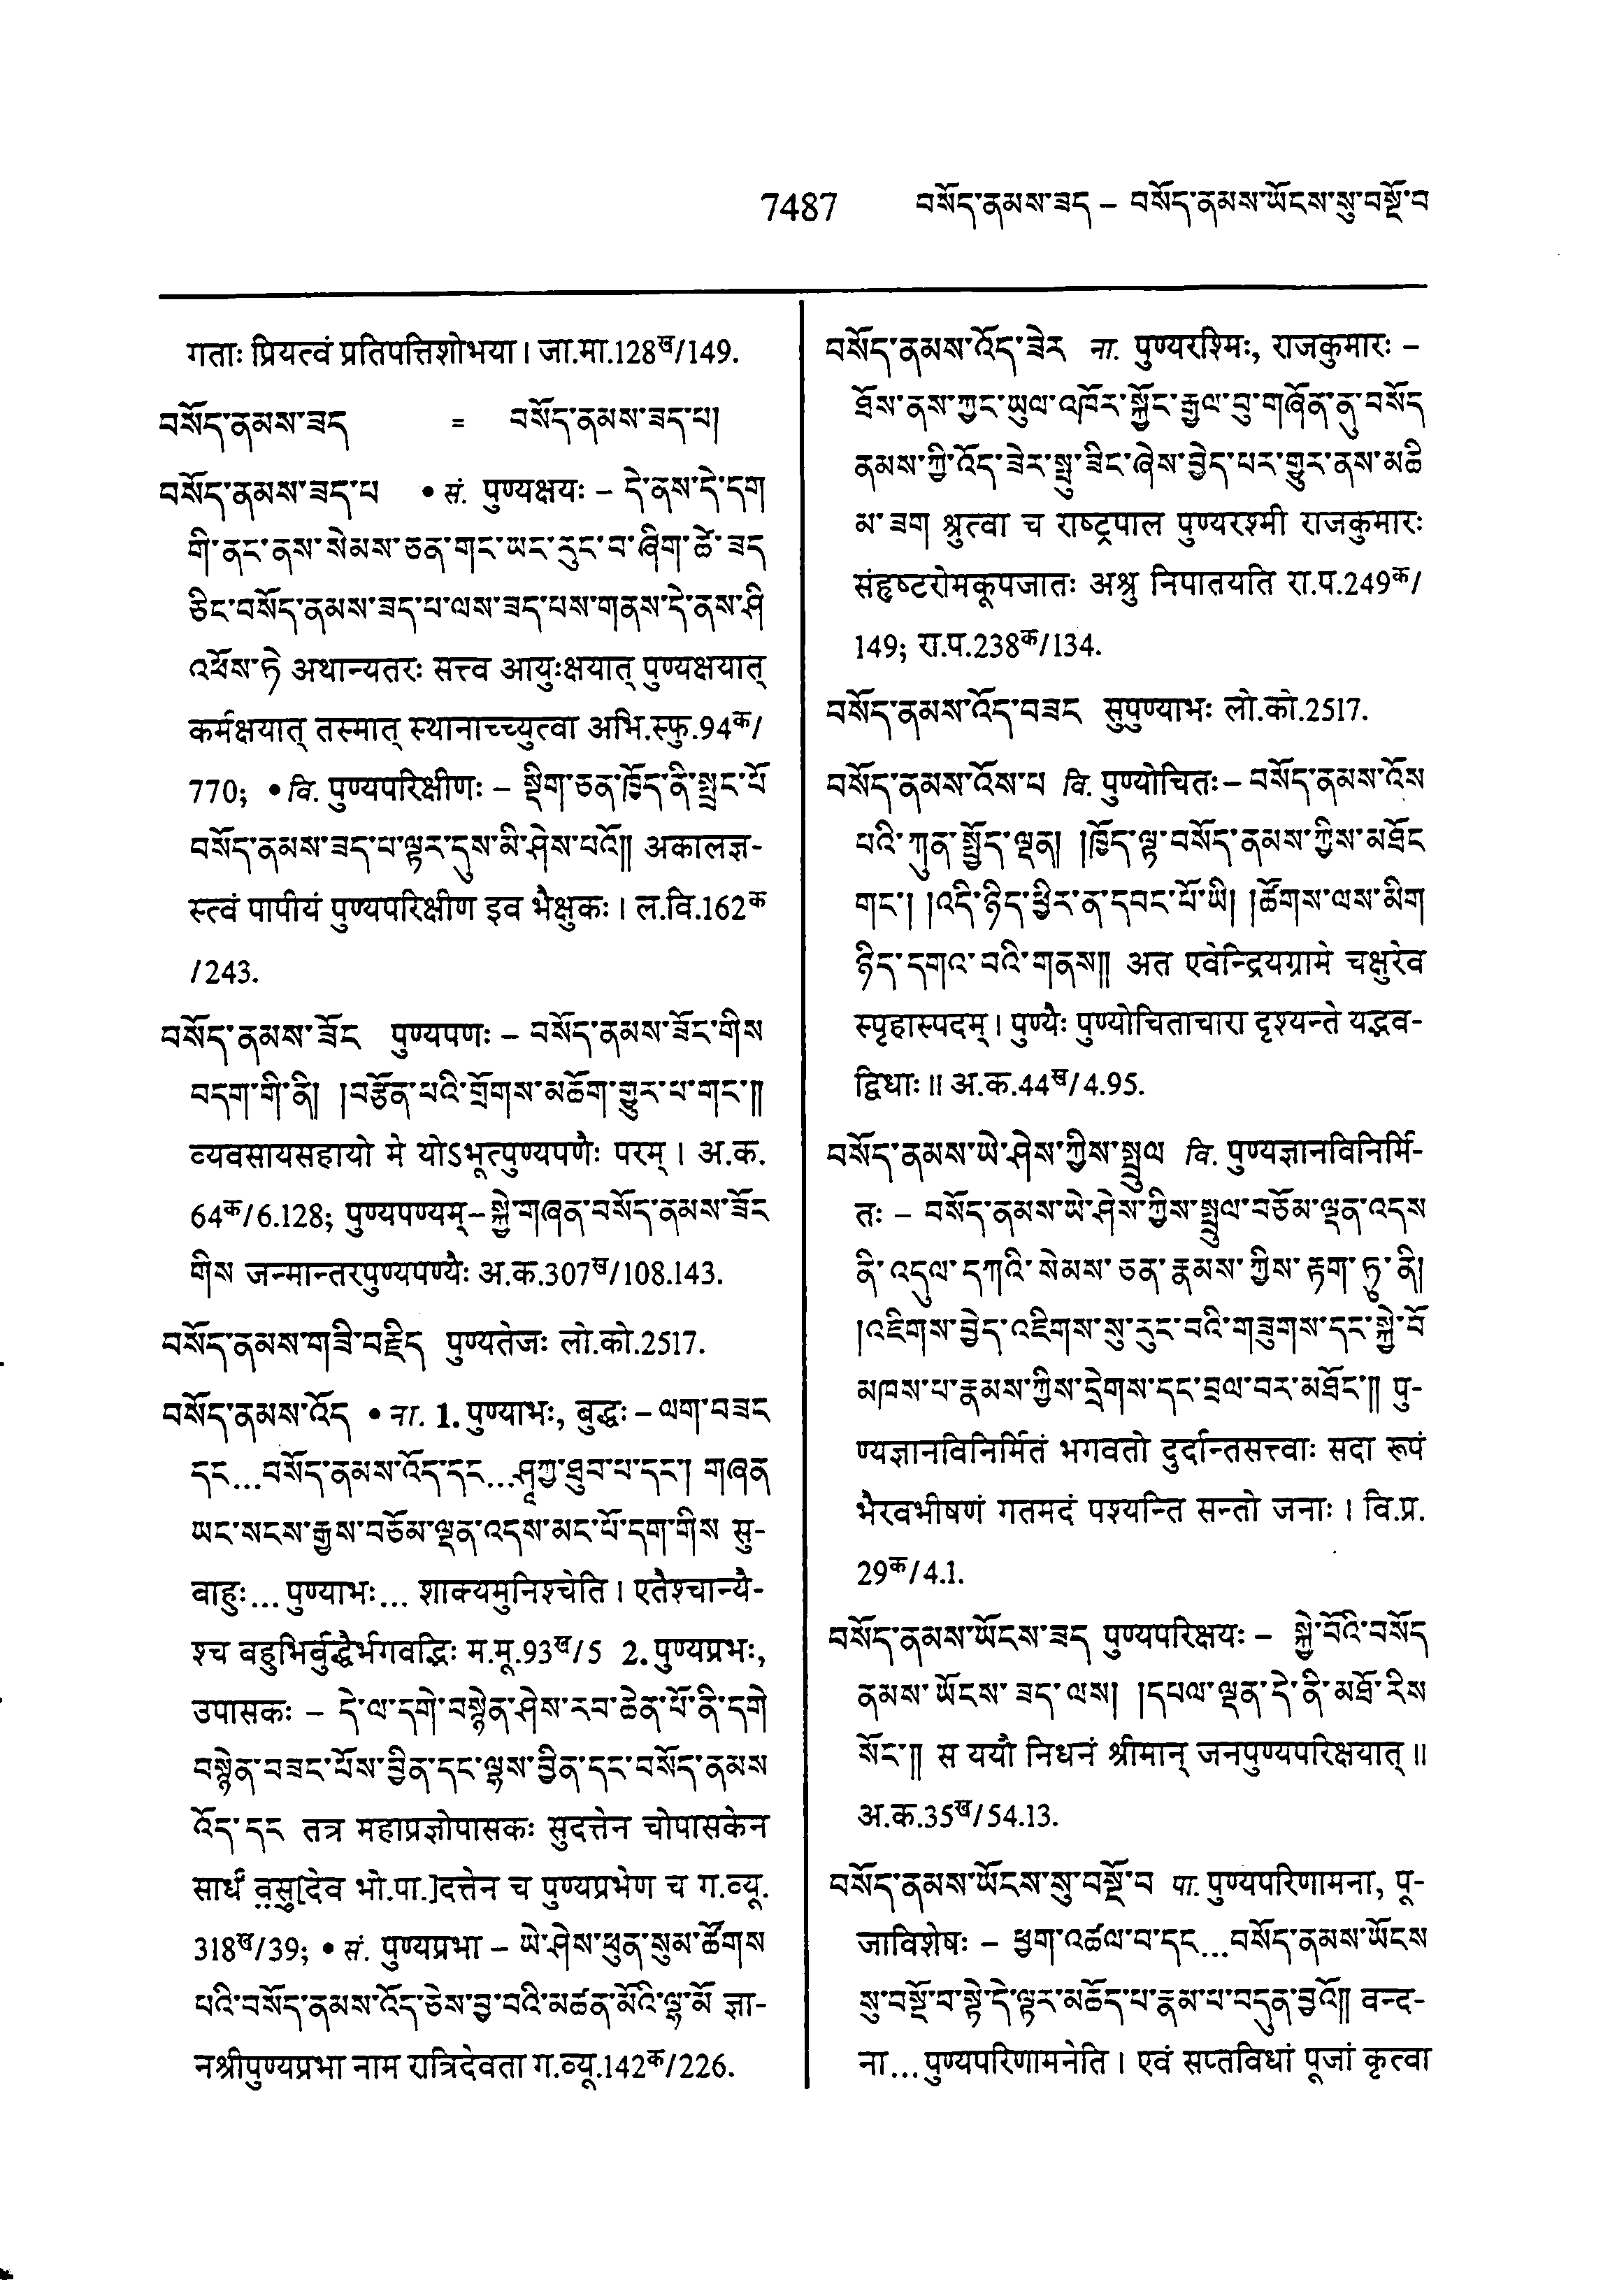 7487 བསོད་ནམས་ཟད – བསོད་ནམས་ཡོངས་སུ་བསྔོ་བ
गताः प्रियत्वं प्रतिपत्तिशोभया। जा.मा.128ख/149.
བསོད་ནམས་ཟད = བསོད་ནམས་ཟད་པ།
བསོད་ནམས་ཟད་པ • सं. पुण्यक्षयः – དེ་ནས་དེ་དག
གི་ནང་ནས་སེམས་ཅན་གང་ཡང་རུང་བ་ཞིག་ཚེ་ཟད
ཅིང་བསོད་ནམས་ཟད་པ་ལས་ཟད་པས་གནས་དེ་ནས་ཤི
འཕོས་ཏེ अथान्यतरः सत्त्व आयुःक्षयात् पुण्यक्षयात्
कर्मक्षयात् तस्मात् स्थानाच्च्युत्वा अभि.स्फु.94क/
770; • वि. पुण्यपरिक्षीणः – སྡིག་ཅན་ཁྱོད་ནི་སྤྲང་པོ
བསོད་ནམས་ཟད་པ་ལྟར་དུས་མི་ཤེས་པའོ༎ अकालज्ञ-
स्त्वं पापीयं पुण्यपरिक्षीण इव भैक्षुकः। ल.वि.162क
/243.
བསོད་ནམས་ཟོང पुण्यपणः – བསོད་ནམས་ཟོང་གིས
བདག་གི་ནི། །བརྩོན་པའི་གྲོགས་མཆོག་གྱུར་པ་གང་༎
व्यवसायसहायो मे योऽभूत्पुण्यपणैः परम्। अ.क.
64क/6.128; पुण्यपण्यम्–སྐྱེ་གཞན་བསོད་ནམས་ཟོང
གིས जन्मान्तरपुण्यपण्यैः अ.क.307ख/108.143.
བསོད་ནམས་གཟི་བརྗིད पुण्यतेजः लो.को.2517.
བསོད་ནམས་འོད • ना. 1. पुण्याभः, बुद्धः – ལག་བཟང
དང...བསོད་ནམས་འོད་དང...ཤཱཀྱ་ཐུབ་པ་དང་། གཞན
ཡང་སངས་རྒྱས་བཅོམ་ལྡན་འདས་མང་པོ་དག་གིས सु-
बाहुः... पुण्याभः... शाक्यमुनिश्चेति। एतैश्चान्यै-
श्च बहुभिर्बुद्धैर्भगवद्भिः म.मू.93ख/5 2. पुण्यप्रभः,
उपासकः – དེ་ལ་དགེ་བསྙེན་ཤེས་རབ་ཆེན་པོ་ནི་དགེ
བསྙེན་བཟང་པོས་བྱིན་དང་ལྷས་བྱིན་དང་བསོད་ནམས
འོད་དང तत्र महाप्रज्ञोपासकः सुदत्तेन चोपासकेन
सार्धं वसु[देव भो.पा.]दत्तेन च पुण्यप्रभेण च ग.व्यू.
318ख/39; • सं. पुण्यप्रभा – ཡེ་ཤེས་ཕུན་སུམ་ཚོགས
པའི་བསོད་ནམས་འོད་ཅེས་བྱ་བའི་མཚན་མོའི་ལྷ་མོ ज्ञा-
नश्रीपुण्यप्रभा नाम रात्रिदेवता ग.व्यू.142क/226.
བསོད་ནམས་འོད་ཟེར ना. पुण्यरश्मिः, राजकुमारः –
ཐོས་ནས་ཀྱང་ཡུལ་འཁོར་སྐྱོང་རྒྱལ་བུ་གཞོན་ནུ་བསོད
ནམས་ཀྱི་འོད་ཟེར་སྤུ་ཟིང་ཞེས་བྱེད་པར་གྱུར་ནས་མཆི
མ་ཟག श्रुत्वा च राष्ट्रपाल पुण्यरश्मी राजकुमारः
संहृष्टरोमकूपजातः अश्रु निपातयति रा.प.249क/
149; रा.प.238क/134.
བསོད་ནམས་འོད་བཟང सुपुण्याभः लो.को.2517.
བསོད་ནམས་འོས་པ वि. पुण्योचितः – བསོད་ནམས་འོས
པའི་ཀུན་སྤྱོད་ལྡན། །ཁྱོད་ལྟ་བསོད་ནམས་ཀྱིས་མཐོང
གང་། །འདི་ཉིད་ཕྱིར་ན་དབང་པོ་ཡི། །ཚོགས་ལས་མིག
ཉིད་དགའ་བའི་གནས༎ अत एवेन्द्रियग्रामे चक्षुरेव
स्पृहास्पदम्। पुण्यैः पुण्योचिताचारा दृश्यन्ते यद्भव-
द्विधाः॥ अ.क.44ख/4.95.
བསོད་ནམས་ཡེ་ཤེས་ཀྱིས་སྤྲུལ वि. पुण्यज्ञानविनिर्मि-
तः – བསོད་ནམས་ཡེ་ཤེས་ཀྱིས་སྤྲུལ་བཅོམ་ལྡན་འདས
ནི་འདུལ་དཀའི་སེམས་ཅན་རྣམས་ཀྱིས་རྟག་ཏུ་ནི།
།འཇིགས་བྱེད་འཇིགས་སུ་རུང་བའི་གཟུགས་དང་སྐྱེ་བོ
མཁས་པ་རྣམས་ཀྱིས་དྲེགས་དང་བྲལ་བར་མཐོང་༎ पु-
ण्यज्ञानविनिर्मितं भगवतो दुर्दान्तसत्त्वाः सदा रूपं
भैरवभीषणं गतमदं पश्यन्ति सन्तो जनाः। वि.प्र.
29क/4.1.
བསོད་ནམས་ཡོངས་ཟད पुण्यपरिक्षयः – སྐྱེ་བོའི་བསོད
ནམས་ཡོངས་ཟད་ལས། །དཔལ་ལྡན་དེ་ནི་མཐོ་རིས
སོང་༎ स ययौ निधनं श्रीमान् जनपुण्यपरिक्षयात्॥
अ.क.35ख/54.13.
བསོད་ནམས་ཡོངས་སུ་བསྔོ་བ पा. पुण्यपरिणामना, पू-
जाविशेषः – ཕྱག་འཚལ་བ་དང...བསོད་ནམས་ཡོངས
སུ་བསྔོ་བ་སྟེ་དེ་ལྟར་མཆོད་པ་རྣམ་པ་བདུན་བྱའོ༎ वन्द-
ना...पुण्यपरिणामनेति। एवं सप्तविधां पूजां कृत्वा